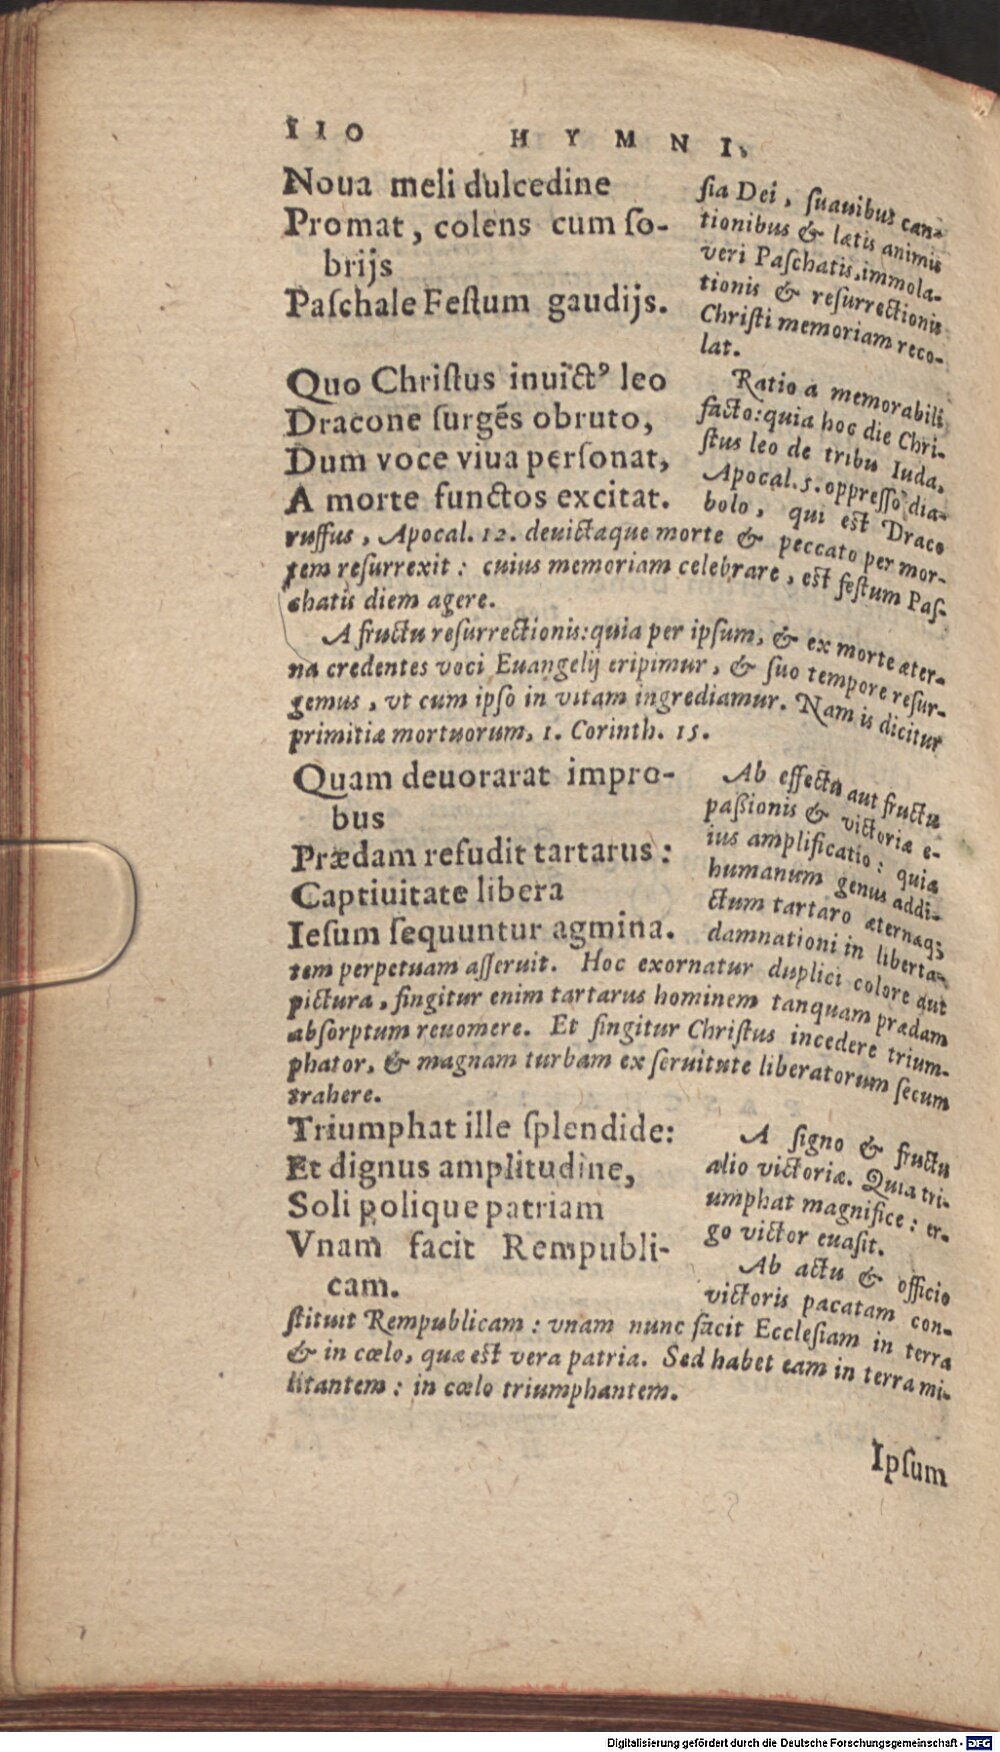 110 HYMNI.
Noua meli dulcedine
Promat, colens cum ſo-
brijs
Paſchale Feſtum gaudijs.
ſia Dei, ſuauibus can-
tionibus & lætis animis
veri Paſchatis, immola-
tionis & reſurrectionis
Chriſti memoriam reco-
lat.
Quo Chriſtus inuictꝰ leo
Dracone ſurgẽs obruto,
Dum voce viua perſonat,
A morte functos excitat.
Ratio a memorabili
facto: quia hoc die Chri-
ſtus leo de tribu Iuda,
Apocal. 5. oppreſſo dia-
bolo, qui est Draco
ruffus, Apocal. 12. deuictaque morte & peccato per mor-
tem reſurrexit: cuius memoriam celebrare, est feſtum Paſ-
chatis diem agere.
A fructu reſurrectionis: quia per ipſum, & ex morte æter-
na credentes voci Euangelij eripimur, & ſuo tempore reſur-
gemus, vt cum ipſo in vitam ingrediamur. Nam is dicitur
primitiæ mortuorum, 1. Corinth. 15.
Quam deuorarat impro-
bus
Prædam refudit tartarus:
Captiuitate libera
Ieſum ſequuntur agmina.
Ab effectu aut fructu
paßionis & victoriæ e-
ius amplificatio: quia
humanum genus addi-
ctum tartaro æternæq;
damnationi in liberta-
tem perpetuam aſſeruit. Hoc exornatur duplici colore aut
pictura, fingitur enim tartarus hominem tanquam prædam
abſorptum reuomere. Et fingitur Chriſtus incedere trium-
phator, & magnam turbam ex ſeruitute liberatorum ſecum
trahere.
Triumphat ille ſplendide:
Et dignus amplitudine,
Soli polique patriam
Vnam facit Rempubli-
cam.
A ſigno & fructu
alio victoriæ. Quia tri-
umphat magnifice: er-
go victor euaſit.
Ab actu & officio
victoris pacatam con-
ſtituit Rempublicam: vnam nunc facit Eccleſiam in terra
& in cœlo, quæ est vera patria. Sed habet eam in terra mi-
litantem: in cœlo triumphantem.
Ipſum
Digitalisierung gefördert durch die Deutsche Forschungsgemeinschaft - DFG